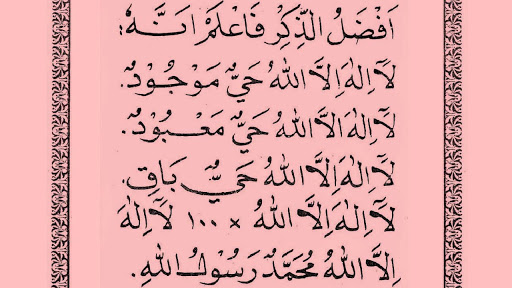 اَفْضَلُ الذِّكْرِ فَاعْلَمْ اَنَّهُ:
لَآ اِلٰهَ اِلَّا اللهُ حَيٌّ مَوْجُوْدٌ.
لَآ اِلٰهَ اِلَّا اللهُ حَيٌّ مَعْبُوْدٌ.
لَآ اِلٰهَ اِلَّا اللهُ حَيٌّ بَاقٍ.
لَآ اِلٰهَ اِلَّا اللهُ × ١٠٠ لَآ اِلٰهَ
اِلَّا اللهُ مُحَمَّدٌ رَسُوْلُ اللهِ.